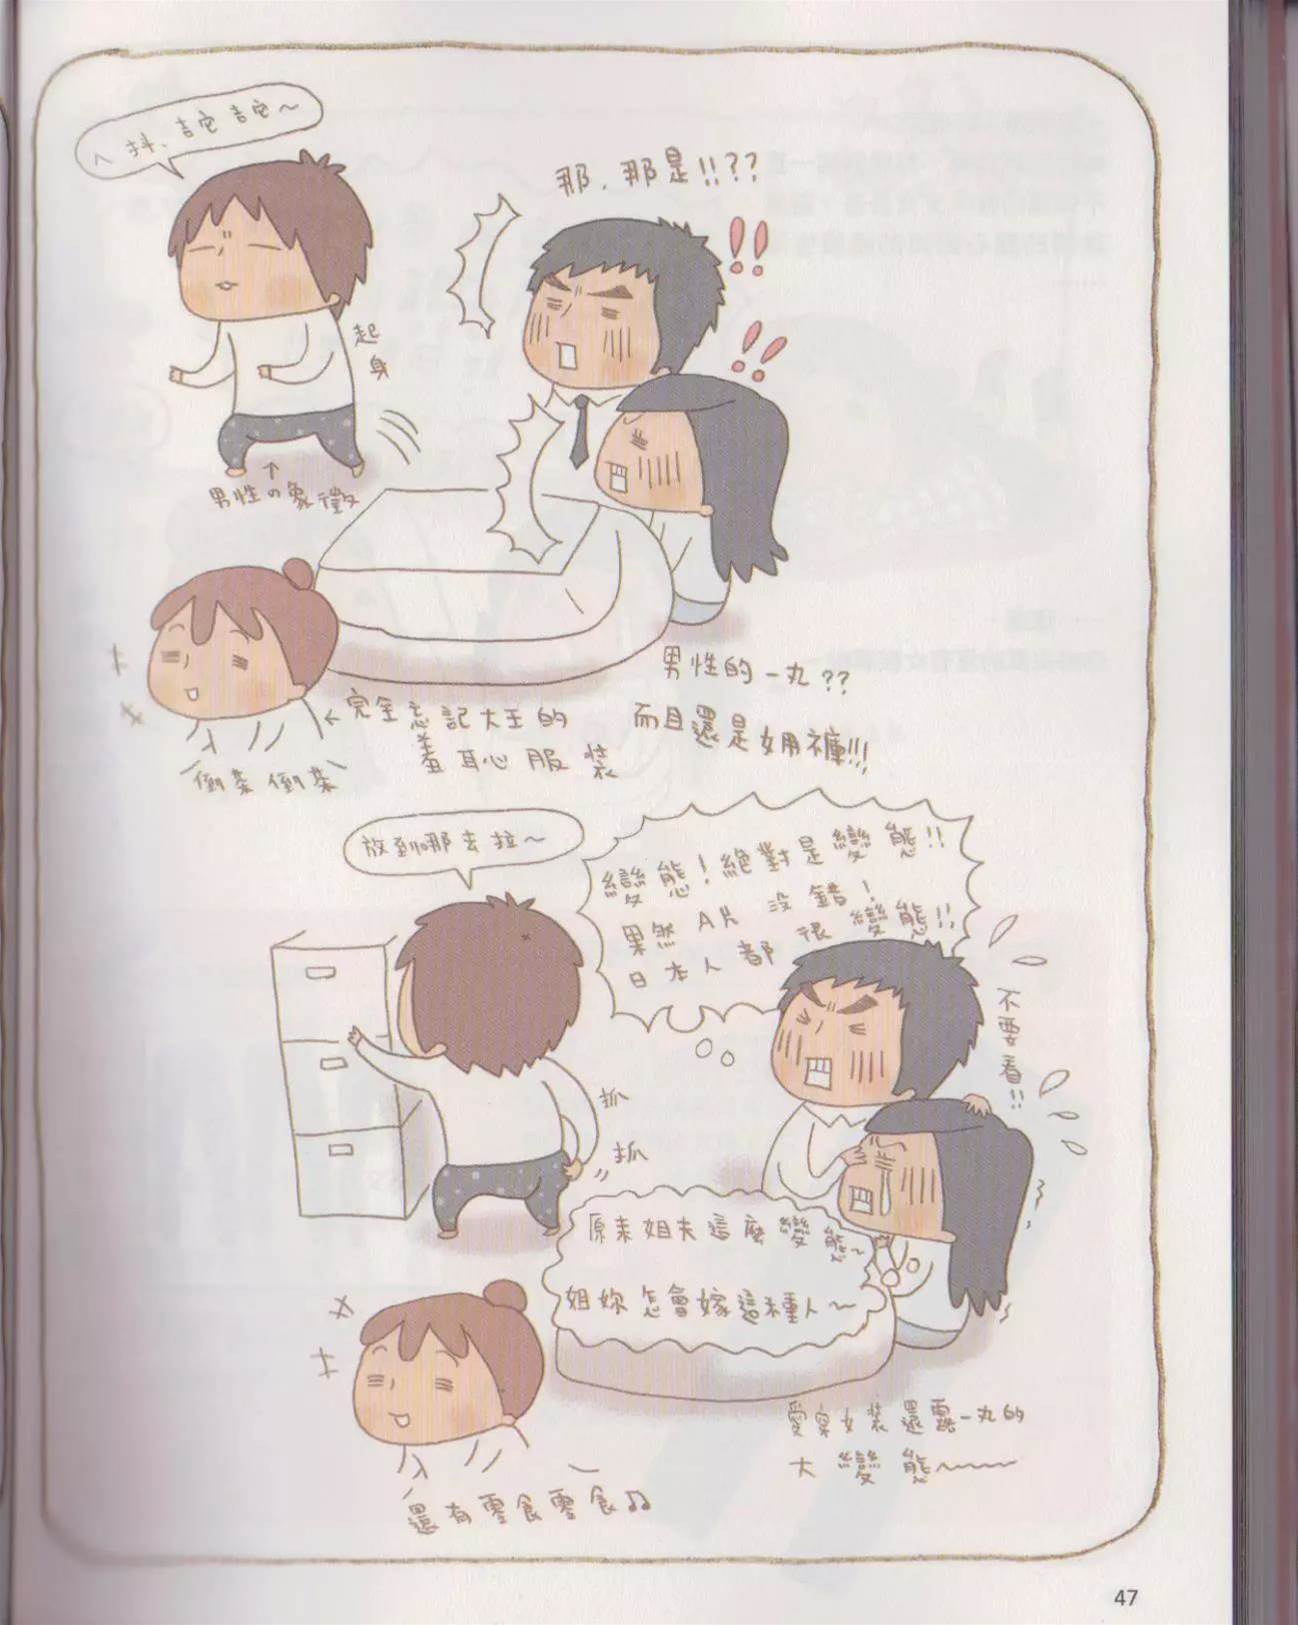 ㄟ抖、吉它吉它～
那、那是!!??
!!
!!
起身
↑
男性の象徵
男性的一丸??
而且還是女用褲!!!
←完全忘記大王的
羞恥心服裝
倒茶倒茶
放到哪去拉～
變態！絕對是變態!!
果然A片沒錯！
日本人都很變態!!
不要看!!
抓
抓
原來姐夫這麼變態～
姐妳怎會嫁這種人～
愛穿女裝還露一丸的
大變態～～～
還有零食零食♫
47